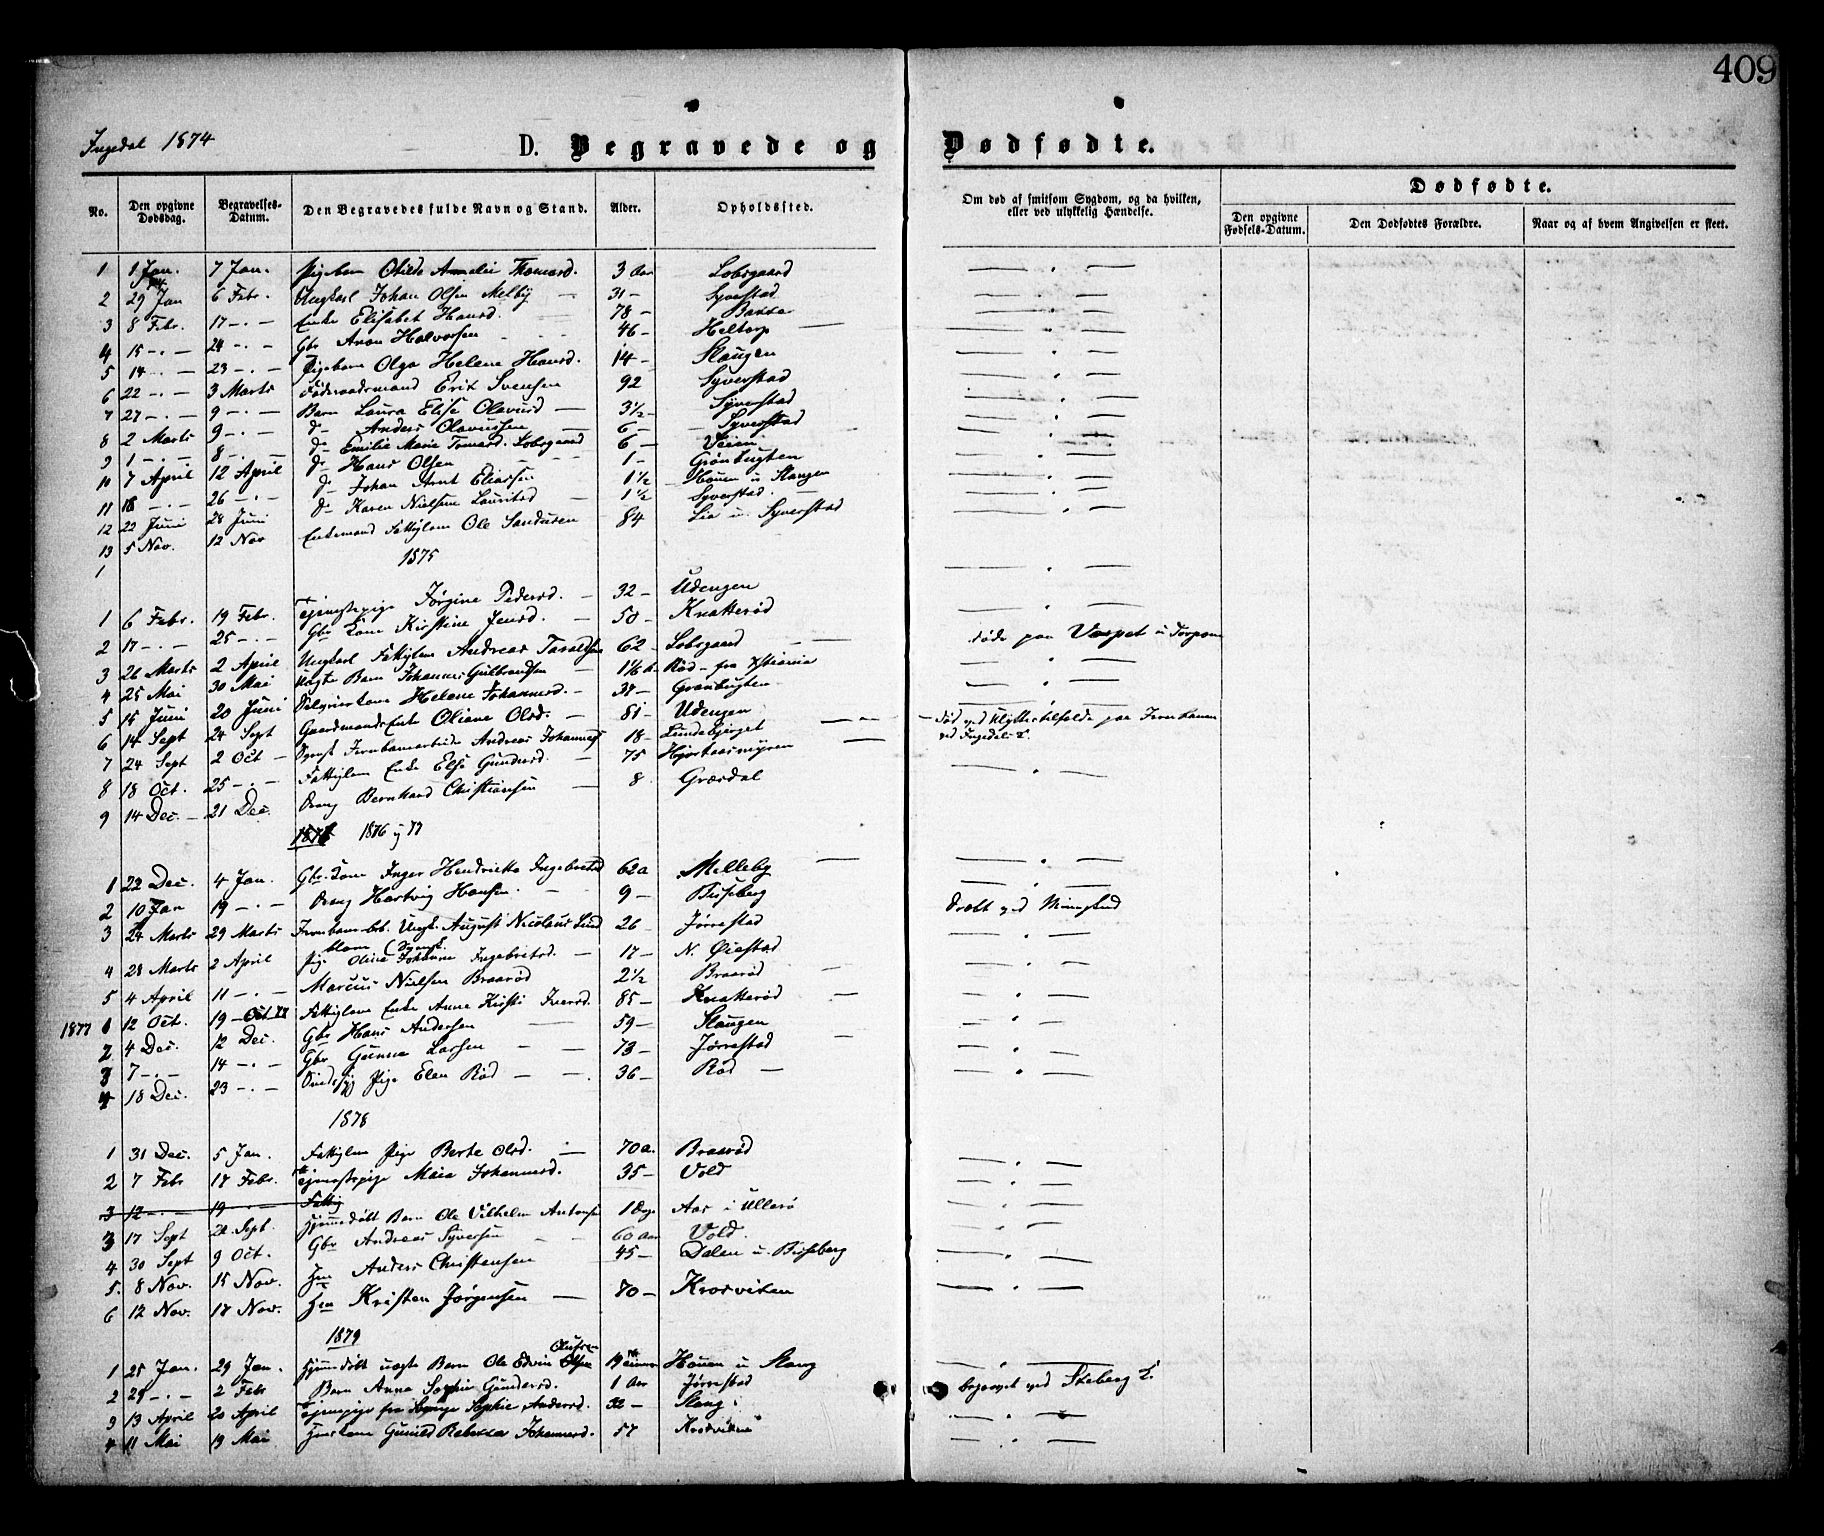 409
Ingedal 1874
D. Begravede og Dødfødte.
No. Den opgivne Dødsdag. Begravelses-Datum. Den Begravedes fulde Navn og Stand. Alder. Opholdssted. Om død af smitsom Sygdom, og da hvilken, eller ved ulykkelig Hændelse. Dødfødte.
Den opgivne Fødsels-Datum. Den Dødfødtes Forældre. Naar og af hvem Angivelsen er skeet.
1 1 Jan. 7 Jan. Pigebarn Otilde Amalie Thomasd. 3 Aar Lobsgaard
2 29 Jan 6 Febr. Ungkarl Johan Olsen Melby 31 – Syverstad
3 8 Febr. 17 – . – Enke Elisabet Hansd. 78 –
4 15 – . – 24 – . – Gbr Aron Halvorsen 46 – Heltorp
5 14 – . – 23 – . – Pigebarn Olga Helene Hansd. 14 – Slangen
6 22 – . – 3 Marts Føderaadsmand Erik Svensen 92 Syverstad
7 27 – . – 9 – . – Barn Laura Elise Olavusd 3 1/2 – Syverstad
8 2 Marts 9 – . – do Anders Olavussen 6 – Syverstad
9 1 – . – 8 – . – do Emilie Marie Tomasd. Lobsgaard 6 – Veien
10 7 April 12 April do Hans Olsen 1 – Grønbugten
11 18 – . – 26 – . – do Johan Arnt Eliassen 1 1/2 Houen u Slangen
12 22 Juni 28 Juni do Karen Nielsine Lauritsd 1 1/2 Syverstad.
13 5 Nov. 12 Nov Enkemand Fattiglem Ole Sandersen 84 Lie u. Syverstad
1875
1
1 6 Febr. 19 Febr. Tjenestepige Jørgine Pedersd. 32 – Udengen
2 17 – . – 25 – . – Gbr Kone Kirstine Jensd. 50 – Knatterød
3 26 Marts 2 April Ungkarl Fattiglem Andreas Taraldsen 62 – Lobsgaard døde paa Vaspet u Torpum
4 25 Mai 30 Mai Uægte Barn Johannes Gulbrandsen Rød – fra Xtiania
5 15 Juni 20 Juni Helene Johannesd. 37 – Grønbugten
6 14 Sept 24 Sept Gaardmands Enke Oliane Olsd. 81 – Udengen
7 24 Sept 2 Oct – Jernbanearbeider Andreas Johannes 18 – Lundebjerget – død ved Ulykkestilfælde paa Jernbanen
ved Ingedal K.
8 18 Oct. 25 – . – Fattiglem Enke Else Gundersd. 75 Hjortaasmyren
9 14 Dec. – 21 Dec. Dreng Bernhard Christiansen 8 Græsdal
1876 og 77
1 22 Dec. 4 Jan. Gbr. Kone Inger Hendrikke Ingebretsd 62 a Melleby
2 10 Jan 19 – . – Dreng Hartvig Hansen. 9 – Buseberg
3 24 Marts 29 Marts Jernbanearb. Ungk. August Nicolaus Lund 26 Jørrestad
4 28 Marts 2 April Pige Oline Johanne Ingebretsd. 17 – N. Øiestad
5 4 April 11 – . – Marcus Nielsen Braarød 2 1/2 Braarød
1877 1 12 Oct. 19 – Oct. 77 Fattiglem Enke Anne Kirsti Iversd. 85 – Knatterød
2 4 Dec. 12 Dec. Gbr Hans Andersen 59 – Slangen
3 7 – . – 14 – . – Gbr Gunne Larsen 73 – Jørrestad
4 18 Dec. 23 – . – Sindssyg Pige Elen Rød 36 – Rød
1878
1 31 Dec. 5 Jan. Fattiglem Pige Berte Olsd. 70 a. Braarød
2 7 Febr 17 Febr. Tjenestepige Maia Johannesd. 35 – Vold
3 12 – . – 19 – . – Fattig
3 17 Sept 22 Sept. Hjemmedøbt Barn Ole Vilhelm Antonsen 1 Dag Aas i Ullerø
4 30 Sept 9 Oct. Gbr Andreas Syversen 60 Aar Vold.
5. 8 Nov. 15 Nov. Hm Anders Christensen 45 – Dalen u. Buseberg
6 12 Nov. 17 Nov. Hm Kristen Jørgensen 70 – Krosviken
1879
1 25 Jan. 29 Jan. Hjemmedøbt uægte Barn Ole Edvin Olsen Houen u Slang
2 29 – . – 2 Febr Barn Anna Sophie Gundersd. 1 Aar Jørrestad begravet ved Skeberg K.
3 13 April 20 April Tjenepige Sophie Andersd. 32 – Slang
4 11 Mai 19 Mai Huuskone Gunild Rebekka Johannesd. 57 Krosviken